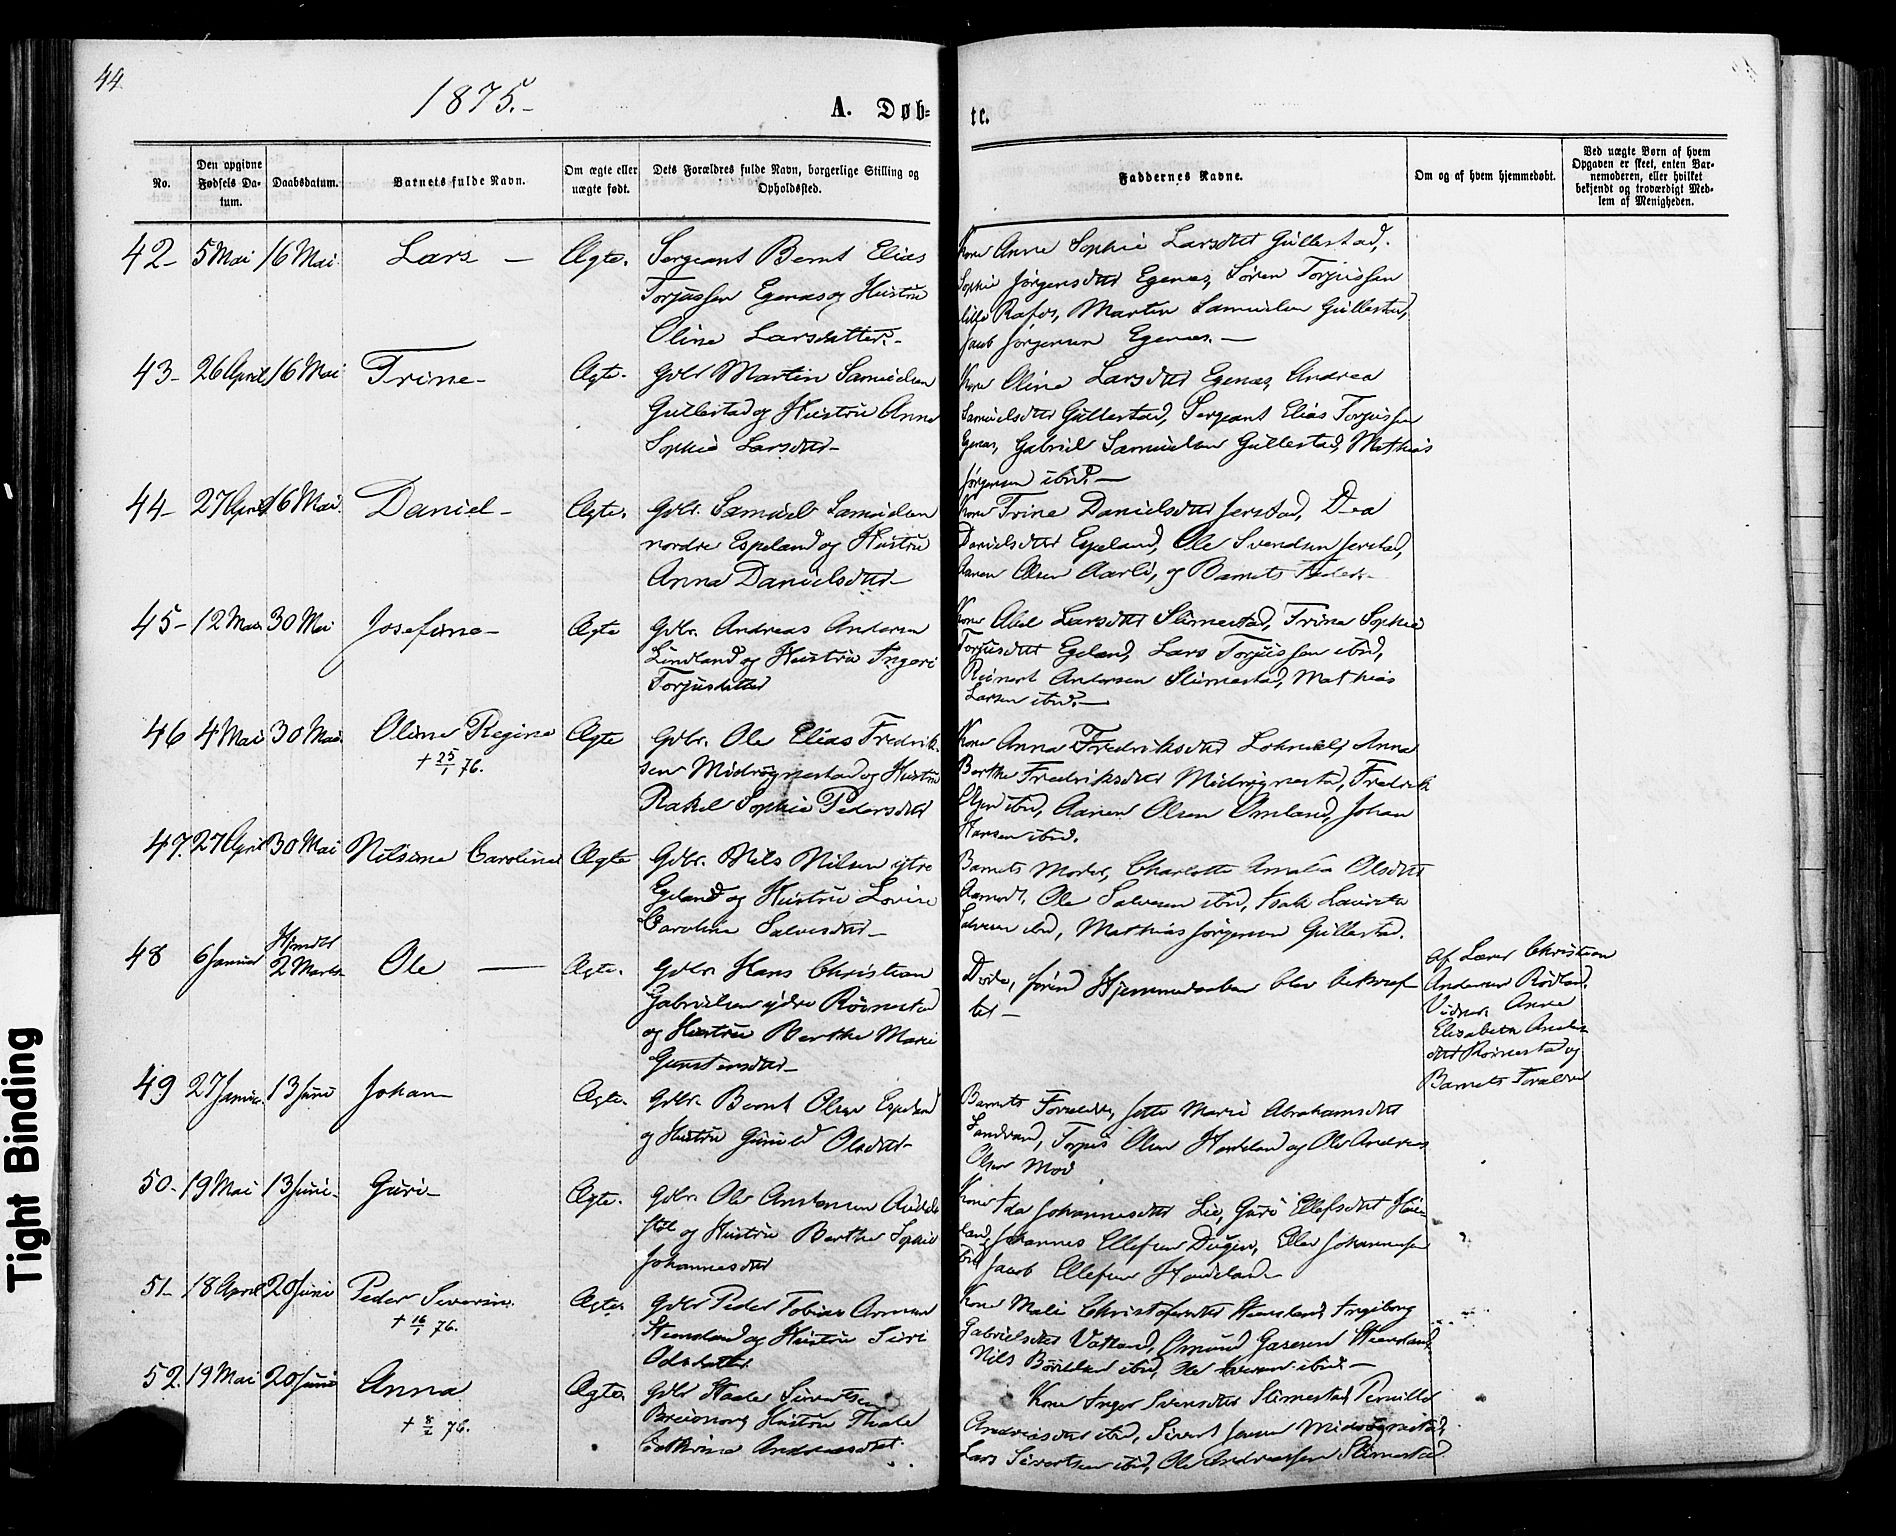 44
1875.-
A. Døb-
te.
No.
Den opgivne Fødsels Datum.
Daabsdatum.
Barnets fulde Navn.
Om ægte eller uægte født.
Dets Forældres fulde Navn, borgerlige Stilling og Opholdssted.
Faddernes Navne.
Om og af hvem hjemmedøbt.
Ved uægte Børn af hvem Opgaven er skeet, enten Barnemoderen, eller hvilket bekjendt og troværdigt Medlem af Menigheden.
42- 5 Mai 16 Mai. Lars - Ægte. Sergeant Bernt Elias
Torjussen Egenæs og Hustru
Oline Larsdatter.-
Kone Anne Sophie Larsdttr Gullestad,
Sophie Jørgensdttr Egenæs, Søren Torjussen
lille Rafos, Martin Samuelsen Gullestad,
Jacob Jørgensen Egenæs.-
43- 26 April 16 Mai Trine- Ægte. Gdbr Martin Samuelsen
Gullestad og Hustru Anne
Sophie Larsdttr-
Kone Oline Larsdttr Egenæs, Andrea
Samuelsdttr Gullestad, Sergeant Elias Torjussen
Egenæs, Gabriel Samuelsen Gullestad, Mathias
Jørgensen ibid.-
44- 27 April 16 Mai. Daniel- Ægte. Gdbr. Samuel Samuelsen
nordre Espeland og Hustru
Anna Danielsdttr-
Kone Trine Danielsdttr Jerstad, Dea
Danielsdttr Egeland, Ole Svendsen Jerstad,
Aanen Olsen Aarli, og Barnets Fader.-
45- 12 Mai 30 Mai Josefine- Ægte Gdbr. Andreas Andersen
Lindland og Hustru Ingeri
Torjusdatter
Kone Abel Larsdttr Slimestad, Trine Sophie
Torjusdttr Egeland, Lars Torjussen ibid,
Reinert Andersen Slimestad, Mathias
Larsen ibid.-
46 4 Mai 30 Mai. Oline Regine Ægte Gdbr. Ole Elias Fredrik-
+ 25/1 76.
sen Midrøgnestad og Hustru
Rakel Sophie Pedersdttr
Kone Anna Fredriksdttr, Anna
Berthe Fredriksdttr Midrøgnestad, Fredrik
Olsen ibid, Aanen Olsen Omland, Johan
Hansen ibid.
47. 27 April 30 Mai Nilsine Caroline Ægte Gdbr. Nils Nilsen ytre
Egeland og Hustru Lovise
Caroline Salvesdttr-
Barnets Moder, Charlotte Amalia Olsdttr
Aamodt, Ole Salvesen ibid, Isak Lauritz
Salvesen ibid, Mathias Jørgensen Gullestad.
48 6 Januar Hjmdbt 2 Marts Ole - Ægte. Gdbr Hans Christian
Gabrielsen ydre Røinestad
og Hustru Berthe Marie
Gunstensdttr-
Døde, førend Hjemmedaaben blev bekræf-
tet -
Af Lærer Christian
Andersen Rødland.
Vidner, Anne
Elisabeth Anders-
dttr Røinestad og
Barnets Forældre
49 27 Januar. 13 Juni Johan- Ægte. Gdbr. Bernt Olsen Espeland
og Hustru Gunild Olsdttr-
Barnets Forældre, Jette Marie Abrahamsdttr
Sandvand, Torjus Olsen Haadeland og Ole Andreas
Olsen Moi
50- 19 Mai 13 Juni- Guri- Ægte. Gdbr. Ole
og Hustru Berthe Sophie
Johannesdttr
Kone Ida Johannesdttr Lie, Guro Ellefsdttr
Johannes Ellefsen Dugan, Ellev Johannesen
ibid Jacob Ellefsen Haadeland-
51- 18 April 20 Juni Peder Severin. Ægte. Gdbr Peder Tobias
+ 16/1 76.
Steensland og Hustru Siri
Odsdatter
Kone Malie Christofersdttr Steensland, Ingeborg
Gabrielsdttr Vatland, Osmund Gasesen Steensland,
Nils ibid, Ole ibid.-
52. 19 Mai 20 Juni Anna Ægte. Gdbr Staale Sivertsen
+ 8/2 76.
Hustru Thale
Cathrine Andreasdttr.
Kone Inger Svensdttr Slimestad, Pernille
Andreasdttr ibid, Sivert Jensen Midrøgnestad,
Lars Sivertsen ibid, Ole Andreassen Slimestad
Tight Binding